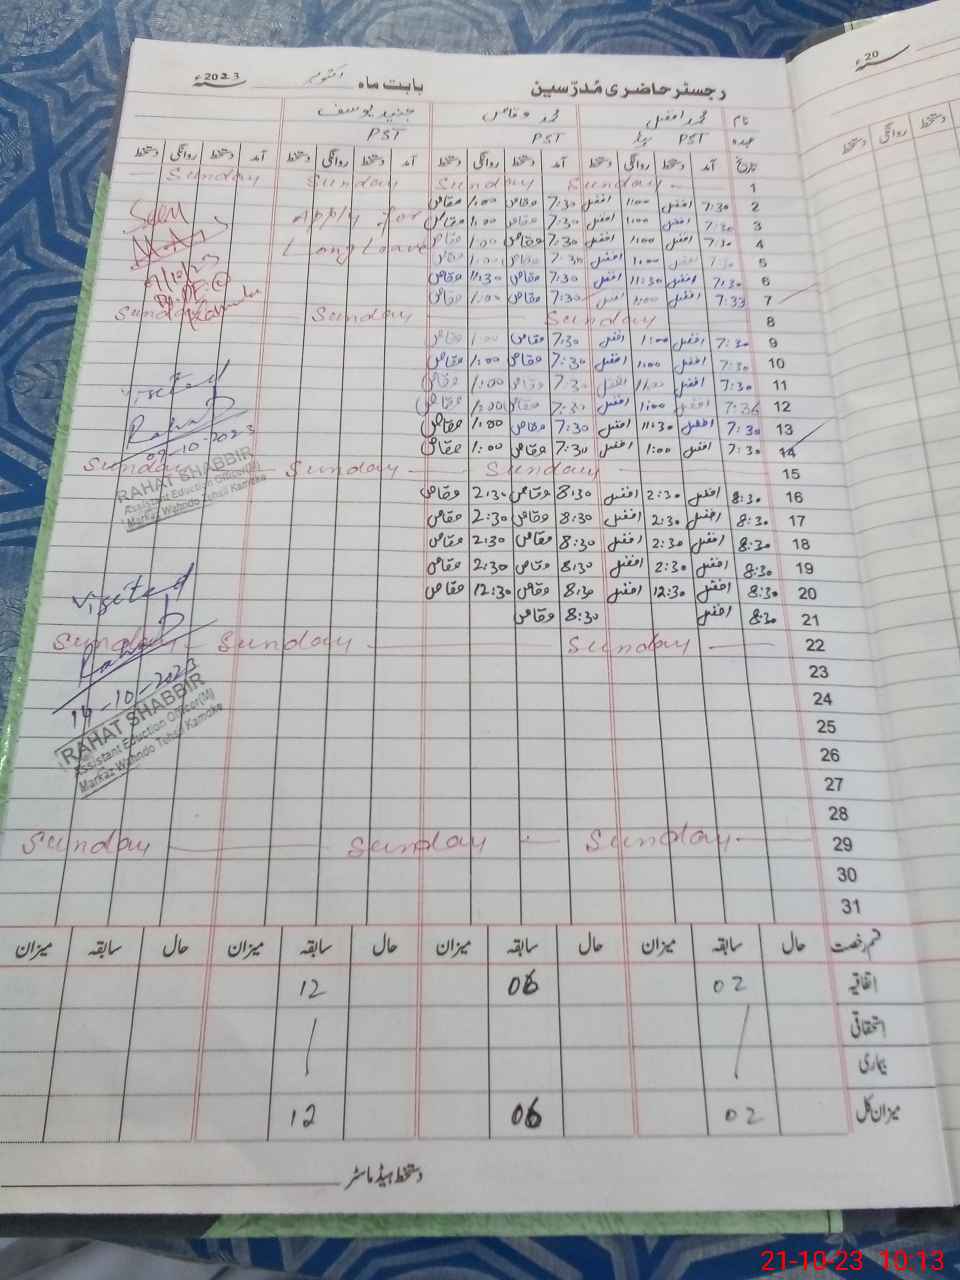 رجسٹر حاضری مُدرّسین بابت ماہ اکتوبر 2023ء
20ء
نام محمد افضل محمد وقاص جنید یوسف
عہدہ PST PST PST
تاریخ آمد دستخط روانگی دستخط آمد دستخط روانگی دستخط آمد دستخط روانگی دستخط آمد دستخط روانگی دستخط
روانگی دستخط
1 Sunday Sunday Sunday Sunday
2 7:30 افضل 1:00 افضل 7:30 وقاص 1:00 وقاص Apply for
3 7:30 افضل 1:00 افضل 7:30 وقاص 1:00 وقاص
4 7:30 افضل 1:00 افضل 7:30 وقاص 1:00 وقاص Long Leave
5 7:30 افضل 1:00 افضل 7:30 وقاص 1:00 وقاص
6 7:30 افضل 11:30 افضل 7:30 وقاص 11:30 وقاص
7 7:33 افضل 1:00 افضل 7:30 وقاص 1:00 وقاص
Seen
8 Sunday Sunday Sunday
9 7:30 افضل 1:00 افضل 7:30 وقاص 1:00 وقاص
10 7:30 افضل 1:00 افضل 7:30 وقاص 1:00 وقاص
11 7:30 افضل 1:00 افضل 7:30 وقاص 1:00 وقاص
12 افضل 1:00 افضل 7:30 وقاص 1:00 وقاص
13 7:30 افضل 11:30 افضل 7:30 وقاص 1:00 وقاص
14 7:30 افضل 1:00 افضل 7:30 وقاص 1:00 وقاص
visited
09-10-2023
15 Sunday Sunday Sunday
RAHAT SHABBIR
Assistant Eduction Officer(M)
Markaz Wahndo Tehsil Kamoke
16 8:30 افضل 2:30 افضل 8:30 وقاص 2:30 وقاص
17 8:30 افضل 2:30 افضل 8:30 وقاص 2:30 وقاص
18 8:30 افضل 2:30 افضل 8:30 وقاص 2:30 وقاص
19 8:30 افضل 2:30 افضل 8:30 وقاص 2:30 وقاص
20 8:30 افضل 12:30 افضل 8:30 وقاص 12:30 وقاص
21 8:30 افضل 8:30 وقاص
visited
22 Sunday Sunday Sunday
23
24
-10-2023
RAHAT SHABBIR
Assistant Eduction Officer(M)
Markaz Wahndo Tehsil Kamoke
25
26
27
28
29 Sunday Sunday Sunday
30
31
قسم رخصت حال سابقہ میزان حال سابقہ میزان حال سابقہ میزان حال سابقہ میزان
اتفاقیہ 02 06 12
استحقاقی
بیماری
میزان کل 02 06 12
دستخط ہیڈ ماسٹر
21-10-23 10:13